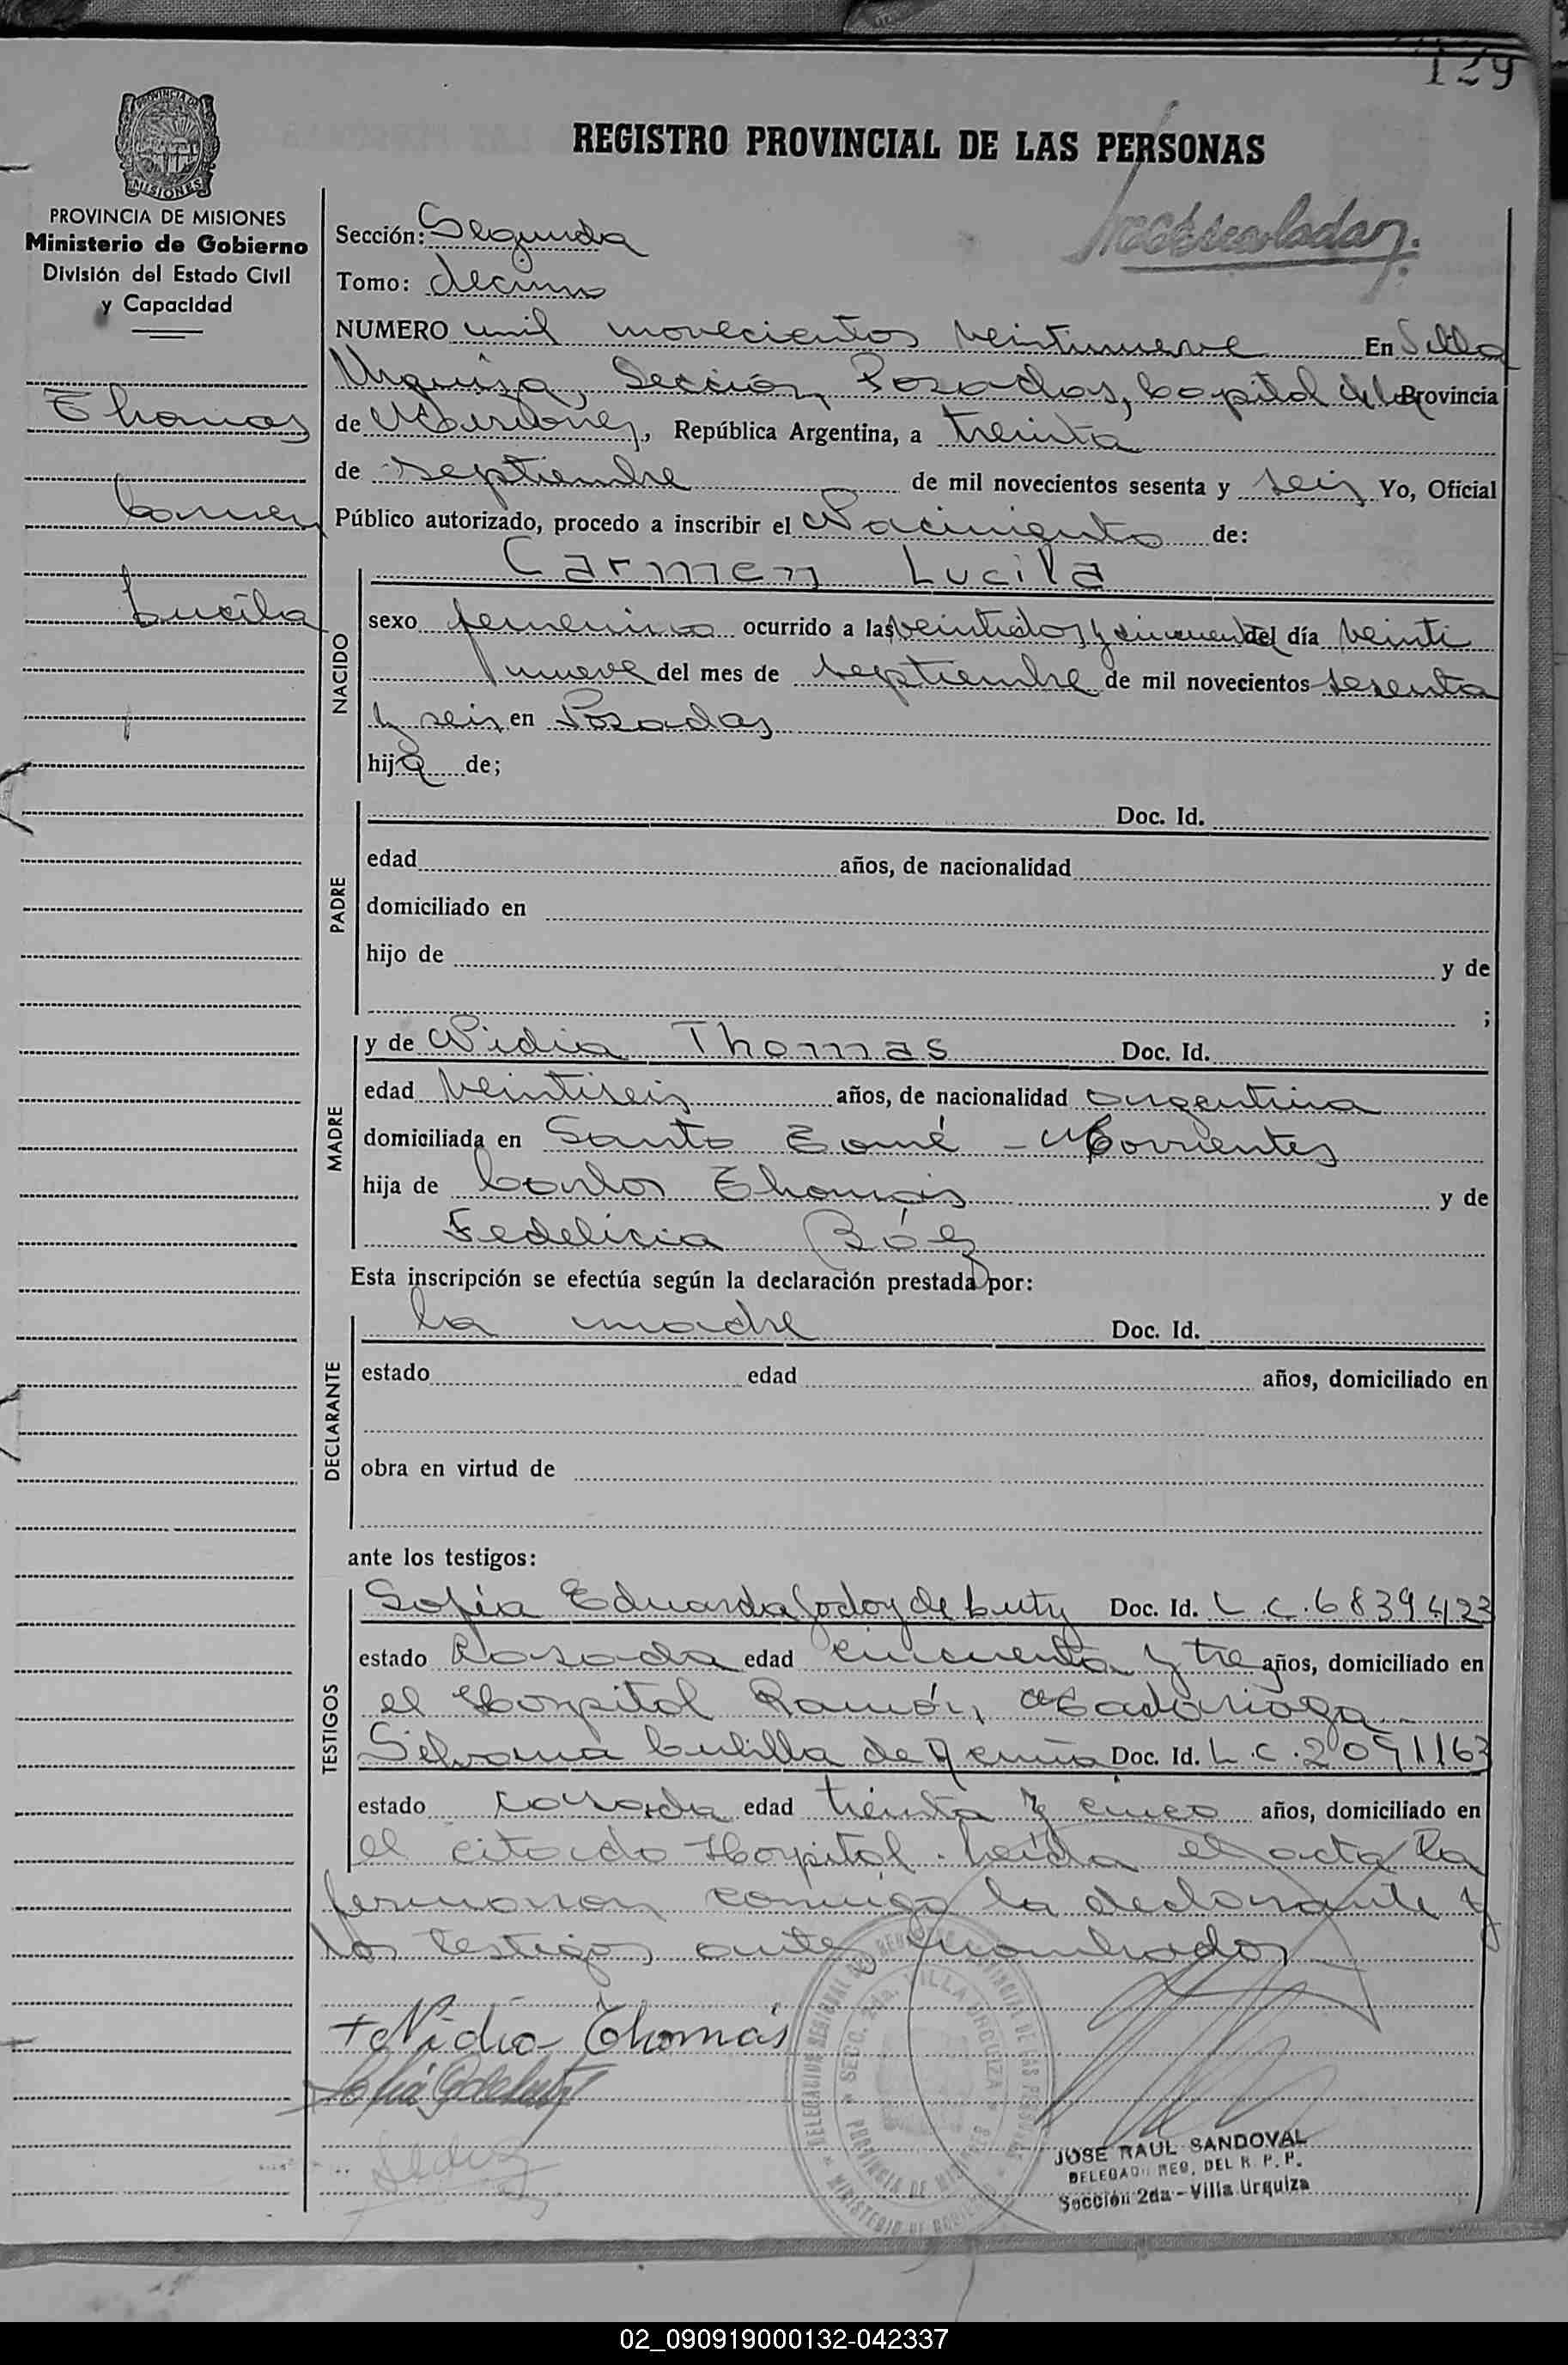 129
REGISTRO PROVINCIAL DE LAS PERSONAS
PROVINCIA DE MISIONES
Ministerio de Gobierno
División del Estado Civil
y Capacidad
Thomas
Carmen
Lucila
Sección: Segunda
Tomo: decimo
NUMERO mil novecientos veintinueve En Villa
Urquiza, Sección Posadas, Capital de la Provincia
de Misiones, República Argentina, a treinta
de septiembre de mil novecientos sesenta y seis Yo, Oficial
Público autorizado, procedo a inscribir el Nacimiento de:
NACIDO
Carmen Lucila
sexo femenino ocurrido a las veintidos y cincuenta del día veinti
nueve del mes de septiembre de mil novecientos sesenta
y seis en Posadas
hija de;
PADRE
Doc. Id.
edad años, de nacionalidad
domiciliado en
hijo de y de
;
MADRE
y de Nidia Thomas Doc. Id.
edad veintiseis años, de nacionalidad argentina
domiciliada en Santo Tomé - Corrientes
hija de Carlos Thomas y de
Fedelicia Báez
Esta inscripción se efectúa según la declaración prestada por:
DECLARANTE
la madre Doc. Id.
estado edad años, domiciliado en
obra en virtud de
ante los testigos:
TESTIGOS
Sofía Eduarda Godoy de Luty Doc. Id. L.C. 6839423
estado casada edad cincuenta y tre años, domiciliado en
el Hospital Ramón Madariaga
Silvana de Acuña Doc. Id. L.C. 2091163
estado casada edad treinta y cinco años, domiciliado en
el citado Hospital. Leída el acta la
firmaron conmigo la declarante y
los testigos antes nombrados
+ Nidia Thomas
DELEGACION REGIONAL DEL REGISTRO PROVINCIAL DE LAS PERSONAS
SECC. 2da. VILLA URQUIZA
PROVINCIA DE MISIONES
MINISTERIO DE GOBIERNO
JOSE RAUL SANDOVAL
DELEGADO REG. DEL R. P. P.
Sección 2da - Villa Urquiza
02_090919000132-042337